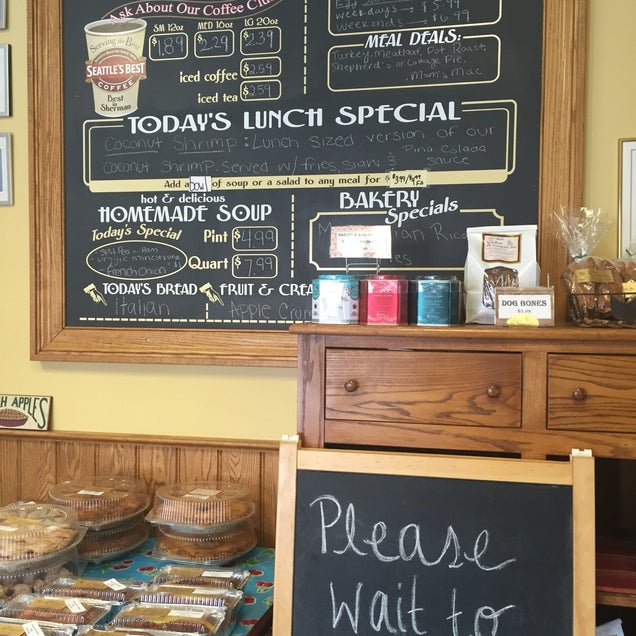 Ask About Our Coffee Clu
Serving the Best
SEATTLE'S BEST
COFFEE
Best in
Sherman
SM 12oz MED 10oz LG 20oz
$1.89 $2.29 $2.39
iced coffee $2.59
iced tea $2.59
weekdays → $5.99
weekends → $6.99
MEAL DEALS:
Turkey, Meatloaf, Pot Roast,
Shepherd's or Cottage Pie,
Mom's Mac
TODAY'S LUNCH SPECIAL
Coconut Shrimp: Lunch sized version of our
Coconut Shrimp. Served w/ fries, slaw & Pina Colada
sauce
Add a of soup or a salad to any meal for $3.99
hot & delicious
HOMEMADE SOUP
Today's Special
Split Pea n Ham
veggie minestrone
French Onion
Pint $4.99
Quart $7.99
TODAY'S BREAD
Italian
FRUIT & CREA
Apple Crum
BAKERY
Specials
DOG BONES
$5.95
H APPLES
Please
Wait to